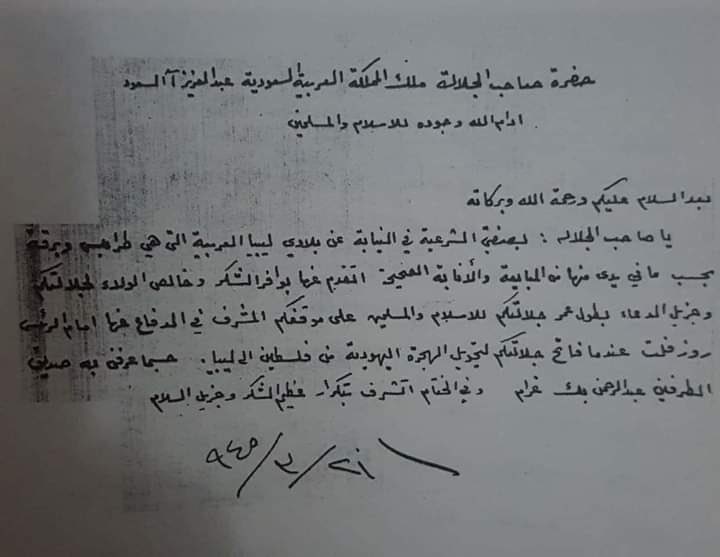 حضرة صاحب الجلالة ملك المملكة العربية السعودية عبدالعزيز آل السعود
ادام الله وجوده للاسلام والمسلمين
بعد السلام عليكم ورحمة الله وبركاته
يا صاحب الجلاله : بصفتي الشرعية في النيابة عن بلادي ليبيا العربية التي هي طرابلس وبرقة
بحسب ما في يدي منها من المبايعة والأنابة الصحيحة اتقدم عنها بوافر الشكر وخالص الولاء لجلالتكم
وجزيل الدعاء بطول عمر جلالتكم للاسلام والمسلمين على موقفكم المشرف في الدفاع عنها امام الرئيس
روزفلت عندما فاتح جلالتكم لتحويل الهجرة اليهودية من فلسطين الى ليبيا . حسبما عرفني به صديق
الطرفين عبدالرحمن بك عزام وفي الختام اتشرف بتكرار عظيم الشكر وجزيل السلام
٢١/٣/٩٤٥